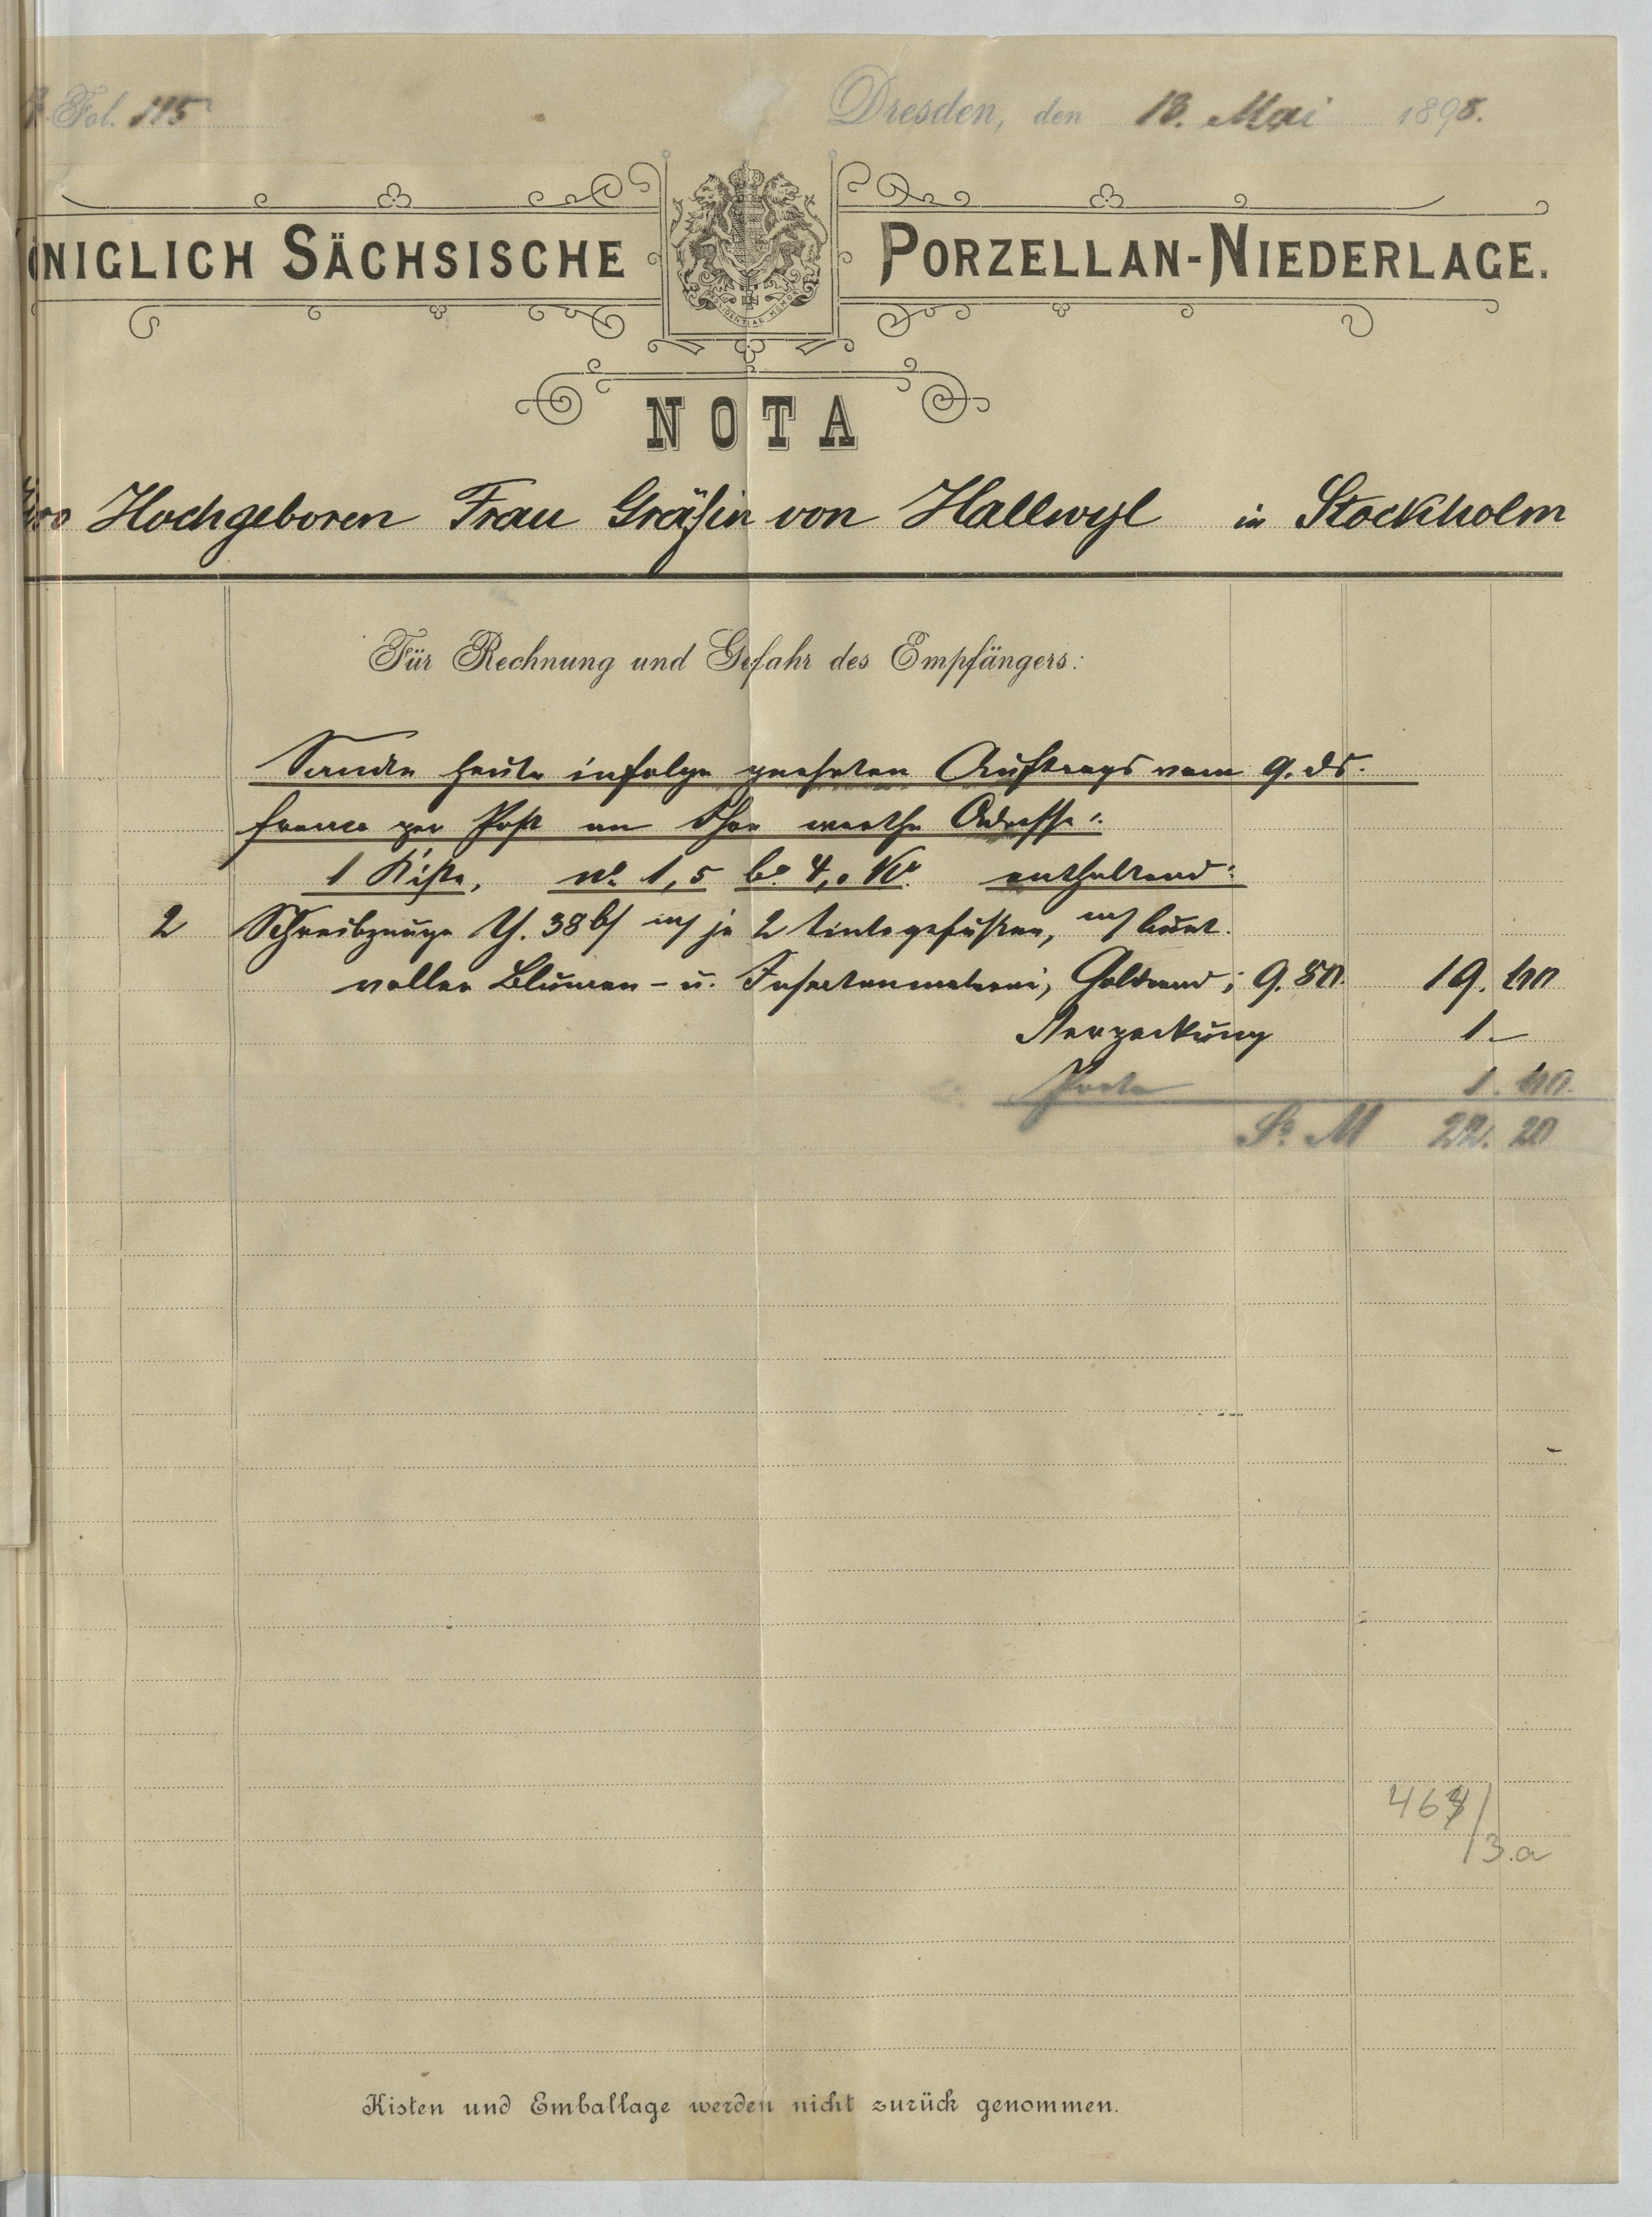 Fol. 115
Dresden, den 18. Mai 1898.
ÖNIGLICH SÄCHSISCHE PORZELLAN-NIEDERLAGE.
PROVIDENTIAE MEMOR
NOTA
Hochgeboren Frau Gräfin von Hallwyl in Stockholm
Für Rechnung und Gefahr des Empfängers:
Sandte heute infolge geehrten Auftrags vom 9. ds.
franco per Post an Ihre werthe Adresse:
1 Kiste, No 1,5 bo 4,0 Ko. enthaltend:
2 Schreibzeuge Y. 38 b/ m/ je 2 Tintegefässen, m/ bunt.
voller Blumen- u. Insectenmalerei, Goldrand; 9.80. 19. 60
Verpackung 1.-
Porto 1. 60.
Sa. M 22. 20
464/
3.a
Kisten und Emballage werden nicht zurück genommen.